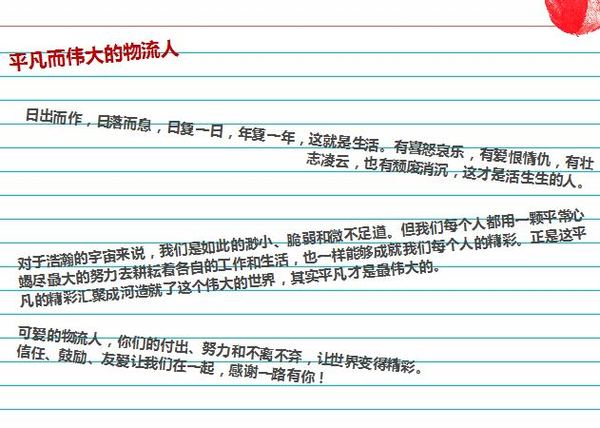 平凡而伟大的物流人
日出而作，日落而息，日复一日，年复一年，这就是生活。有喜怒哀乐，有爱恨情仇，有壮
志凌云，也有颓废消沉，这才是活生生的人。
对于浩瀚的宇宙来说，我们是如此的渺小、脆弱和微不足道。但我们每个人都用一颗平常心
竭尽最大的努力去耕耘着各自的工作和生活，也一样能够成就我们每个人的精彩。正是这平
凡的精彩汇聚成河造就了这个伟大的世界，其实平凡才是最伟大的。
可爱的物流人，你们的付出、努力和不离不弃，让世界变得精彩。
信任、鼓励、友爱让我们在一起，感谢一路有你！